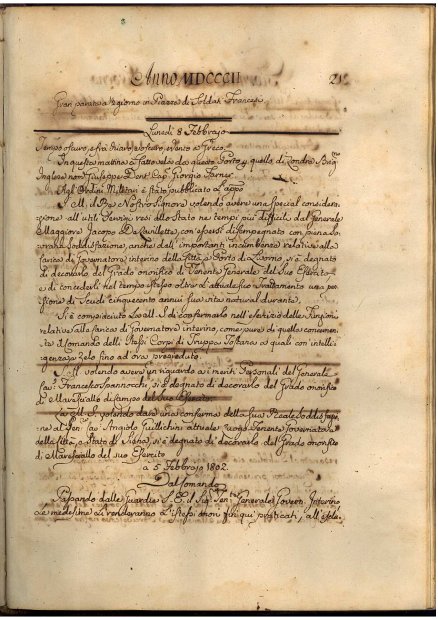 Anno MDCCCII
21.
Gran parata a 2 giorno in Piazza di Soldati Francesi
Lunedì 8 Febbrajo
Tempo oscuro, e fra chiaro, e vento a Greco.
In questa mattina è fatto vela da questo Porto p. quello di Londra Brig.no
Inglese non Giuseppe e Dont Cap. Giorgio Farner.
Agl'Ordini Militari è stato pubblicato l'appo
S. M. il Re Nostro Signore volendo avere una special considera-
zione all'utili servizi resi allo Stato ne' tempi più difficili dal Generale
Maggiore Jacopo De Lavillette, con essersi disimpegnato con piena So-
vrana Soddisfazione, anche dall'importanti incumbenze relative alla
Carica di Governatore interino della Città, e Porto di Livorno, si è degnato
di decorarlo del Grado onorifico di Tenente Generale del Suo Esercito
e di concederli nel tempo istesso oltre l'attuale suo Trattamento una pen-
sione di Scudi cinquecento annui sua vita natural durante.
Si è compiaciuta la M. S. di confermarlo nell'esercizio delle Funzioni
relative alla Carica di Governatore interino, come pure di quelle concernenti
il Comando delli stessi Corpi di Truppa Toscana ai quali con intelli-
genza, e zelo fino ad ora preseduto.
S. M. volendo avere un riguardo ai meriti Personali del Generale
Cav. Francesco Spannocchi, si è degnato di decorarlo del Grado onorifico
di Maresciallo di Campo del Suo Esercito.
La M. S. volendo dare una conferma della Sua Reale Soddisfazio-
ne al Sen. Cav. Angiolo Guillichini attuale Luogo Tenente Governatore
della Città, e Stato di Siena, si è degnato di decorarlo del Grado onorifico
di Maresciallo del suo Esercito
a 5 Febbrajo 1802.
Dal Comando
Passando dalle Guardie S. E. il Sig. Ten.te Generale Govern. Interino
Le medesime li renderanno l'istessi onori fin qui praticati, all'istes-